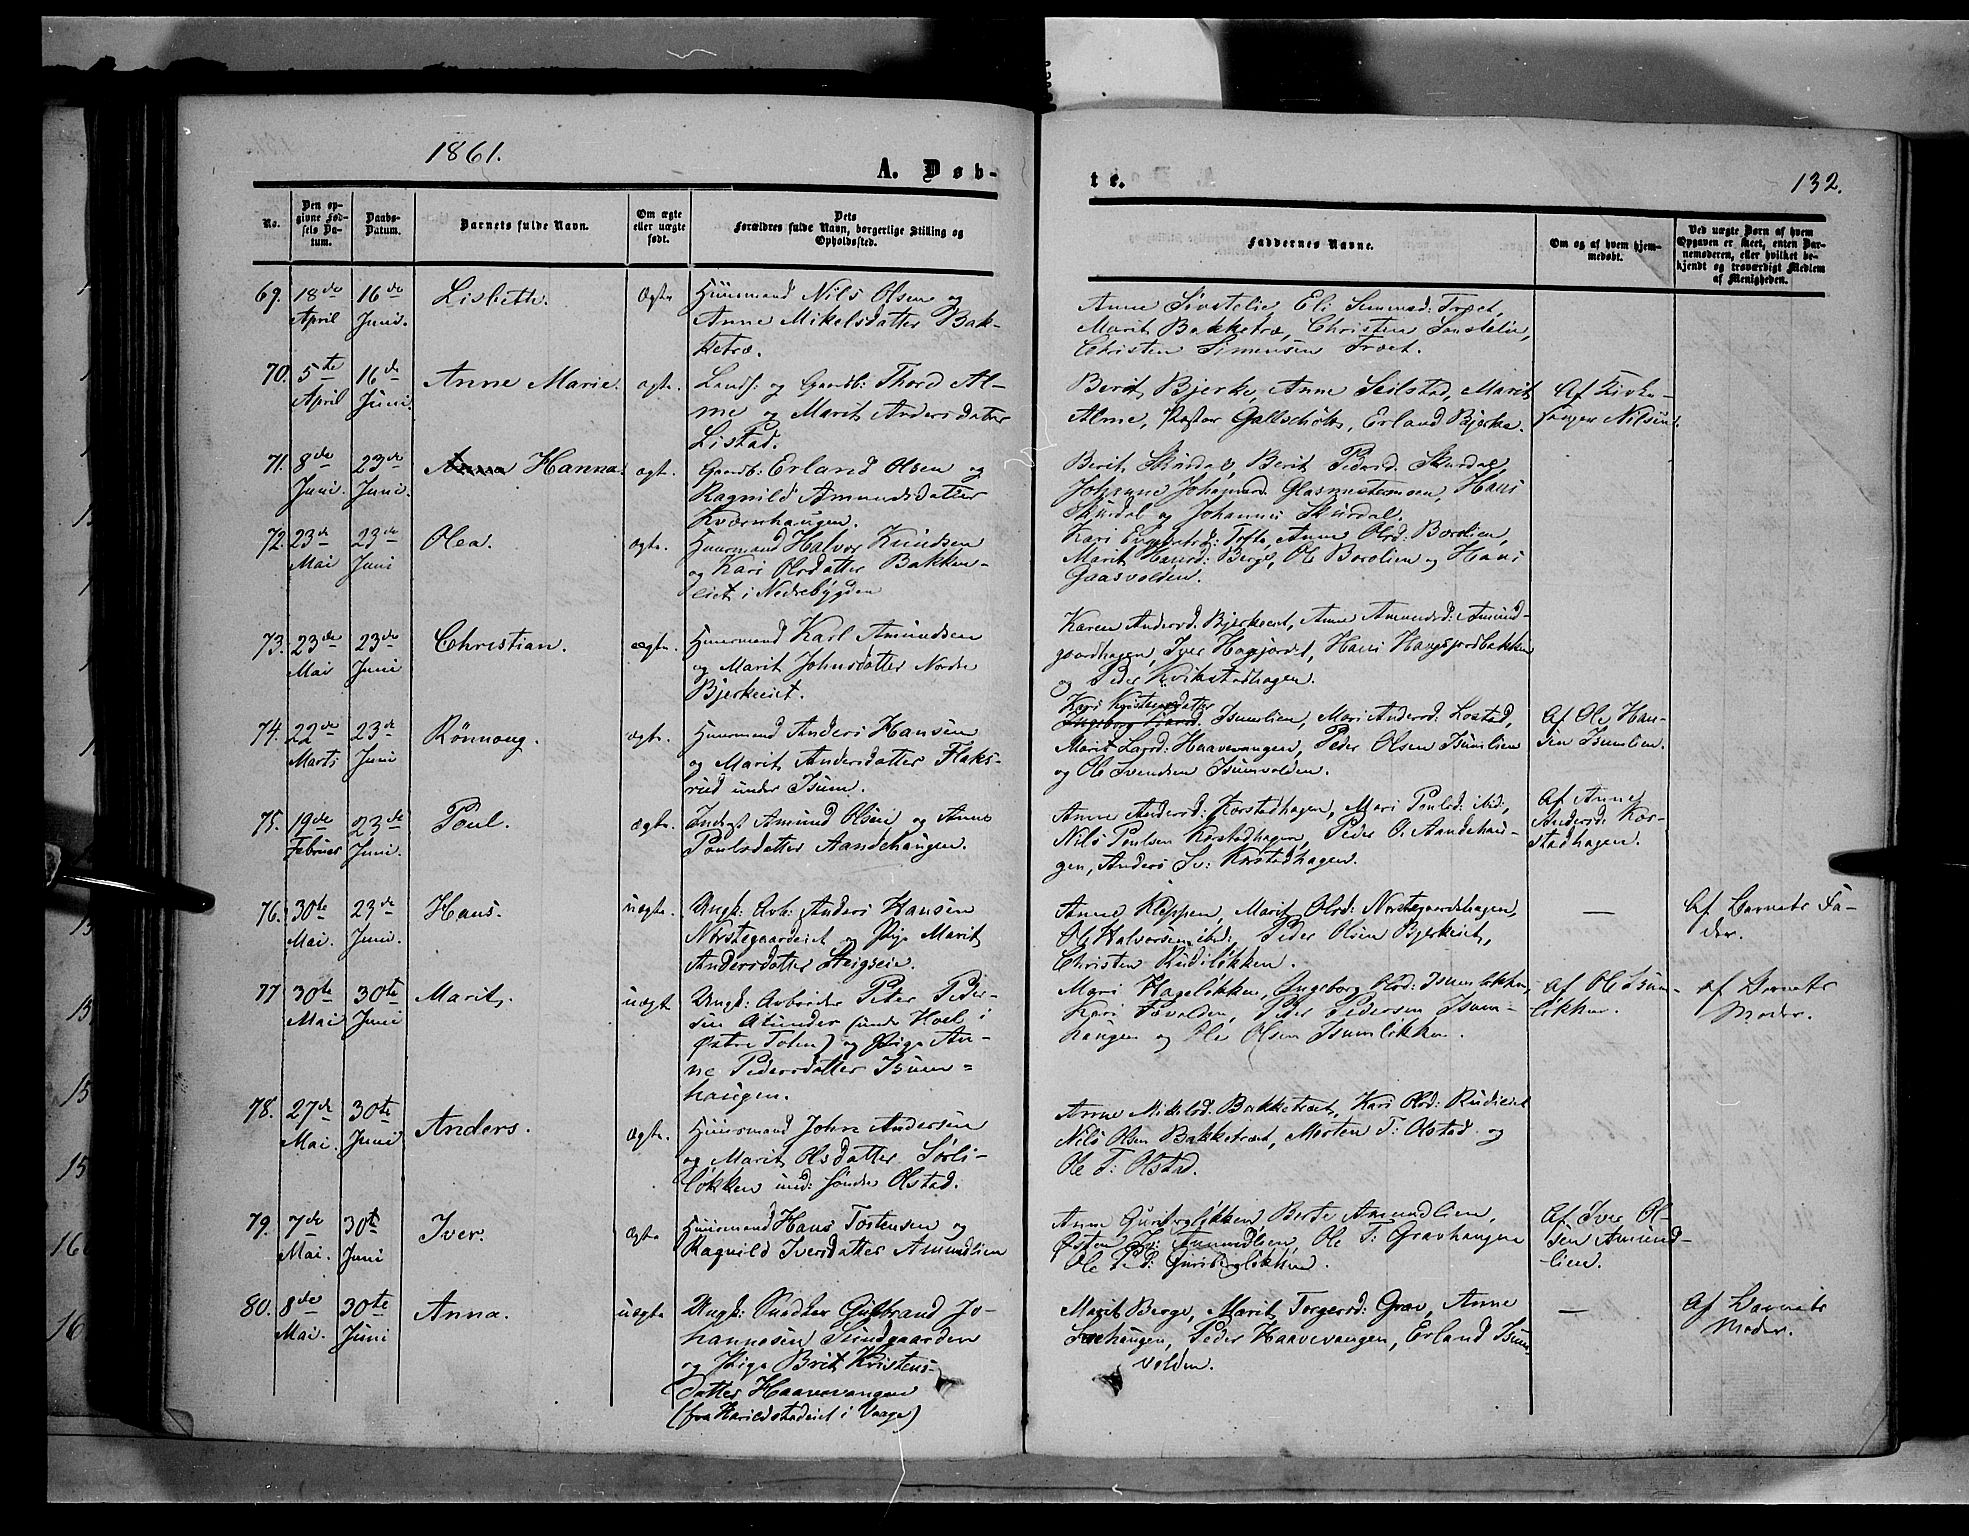 1861.
A. Døb-
te.
132.
No.
Den op-
givne Fød-
sels Da-
tum.
Daabs-
Datum.
Barnets fulde Navn.
Om ægte
eller uægte
født.
Dets
Forældres fulde Navn, borgerlige Stilling og
Opholdssted.
Faddernes Navne.
Om og af hvem hjem-
medøbt.
Ved uægte Børn af hvem
Opgaven er skeet, enten Bar-
nemoderen, eller hvilket be-
kjendt og troværdigt Medlem
af Menigheden.
69. 18de April 16de Juni. Lisbeth. Ægte
Huusmand Nils Olsen og
Anne Mikelsdatter Bak-
ketræ.
Anne Eli Træet,
Marit Bakketræ, Christen
Christen Simensen Træet.
70. 5te April 16de Juni. Anne Marie. ægte.
og Gaardb: Thord Al-
me og Marit Andersdatter
Listad.
Berit Bjerke, Anne Seilstad, Marit
Alme, Pastor Erland Bjerke.
Af Kirke-
sanger Nilsen.
71. 8de Juni. 23de Juni. Anna Hanna. ægte.
Gaardb: Erland Olsen og
Ragnild Amundsdatter
Kværnhaugen.
Berit Skurdal, Berit Pedersd. Skurdal,
Johanne Hans
Skurdal og Johannes Skurdal.
72. 23de Mai 23de Juni Olea. ægte.
Huusmand Halvor Knudsen
og Kari Olsdatter Bakke-
eiet i Nedrebygden
Kari Anne Olsd: Borolien,
Marit Hansd: Berge, Ole Borolien og Hans
Gaasvolden.
73. 23de Mai 23de Juni Christian. ægte.
Huusmand Karl Amundsen
og Marit Johnsdatter Nordre
Bjerkeeiet.
Karen Andersd. Bjerkeeiet, Anne Amundsd: Amund-
Iver Hans
og Peder Kvikstadhagen.
74. 22de Marts 23de Juni Rønnoug. ægte.
Huusmand Anders Hansen
og Marit Andersdatter Flaks-
rud under Isum.
Kari Kristensdatter
Ingeborg Isumlien, Mari Andersd: Lostad,
Marit Larsd: Haavevangen, Peder Olsen Isumlien
og Ole Svendsen Isumvolden.
Af Ole Han-
sen Isumlien.
75. 19de Februar 23de Juni. Poul. ægte.
Inderst Amund Olsen og Anne
Poulsdatter Aandehaugen.
Anne Andersd: Korstadhagen, Mari Poulsd: ibd:,
Nils Poulsen Korstadhagen, Peder O. Aandehau-
gen, Anders Korstadhagen.
Af Anne
Andersd: Kor-
stadhagen.
76. 30te Mai. 23de Juni. Hans. uægte.
Ungk: Arb: Anders Hansen
Norstegaardeiet og Pige Marit
Andersdatter Steigseie.
Anne Kleppen, Marit Olsd: Norstegaardshagen,
Ole Halvorsen ibd:, Peder Olsen Bjerkeiet,
Christen Rudiløkken.
—
Af Barnets Fa-
der.
77 30te Mai 30te Juni Marit. uægt
Ungk: Arbeider Peter Peder-
sen Alunder (under Hoel i
Østre Toten) og Pige An-
ne Pedersdatter Isum-
haugen.
Mari Hageløkken, Ingeborg Olsd: Isumløkken,
Kari Peder Pedersen Isum-
haugen og Ole Olsen Isumløkken.
af Ole Isum-
løkken.
af Barnets
Moder.
78. 27de Mai. 30te Juni Anders. ægte.
Huusmand John Andersen
og Marit Olsdatter Sørli-
løkken und: søndre Olstad.
Anne Mikelsd. Bakketræet, Kari Olsd: Rudieiet
Nils Olsen Bakketræet, Morten T: Olstad og
Ole T: Olstad.
79. 7de Mai. 30te Juni Iver. ægte
Huusmand Hans Tostensen og
Ragnild Iversdatter Amundlien
Anne Guriberløkken, Berte Amundlien,
Østen Iv: Amundlien, Ole T: Gravhaugen
Ole Ped: Guriberløkken.
Af Iver Ol-
sen Amund-
lien.
80. 8de Mai. 30te Juni Anna. uægte
Ungk: Snedker Gulbrand Jo-
hannesen Sundgaarden
og Pige Brit Kristens-
datter Haavevangen
(fra Harildstadeiet i Vaage)
Marit Berge, Marit Torgersd: Grav, Anne
Peder Haavevangen, Erland Isum-
volden.
—
Af Barnets
Moder.